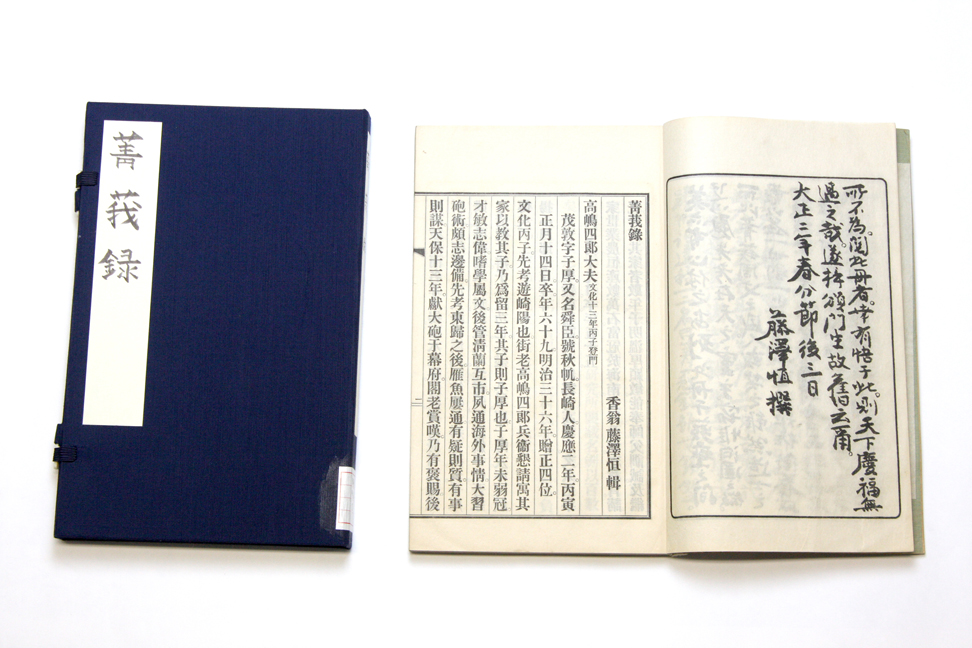 菁莪録
所不為。閲此冊者。幸有悟于此。則天下慶福無
過之哉。遂梓頒門生故舊云爾。
大正三年春分節後三日
藤澤恒撰
菁莪錄
香翁 藤澤恒 輯
高嶋四郎大夫文化十三年丙子登門
茂敦字子厚。又名舜臣。號秋帆。長崎人。慶應二年。丙寅
正月十四日卒年六十九明治三十六年。贈正四位。
文化丙子。先考遊崎陽也街老高嶋四郎兵衞懇請寓其
家以教其子乃爲留三年其子則子厚也子厚年未弱冠
才敏志偉嗜學屬文後管淸蘭互市。夙通海外事情大習
砲術頗志邊備。先考東歸之後。雁魚屢通有疑則質。有事
則謀天保十三年獻大砲于幕府。閣老賞嘆乃有褒賜後
二